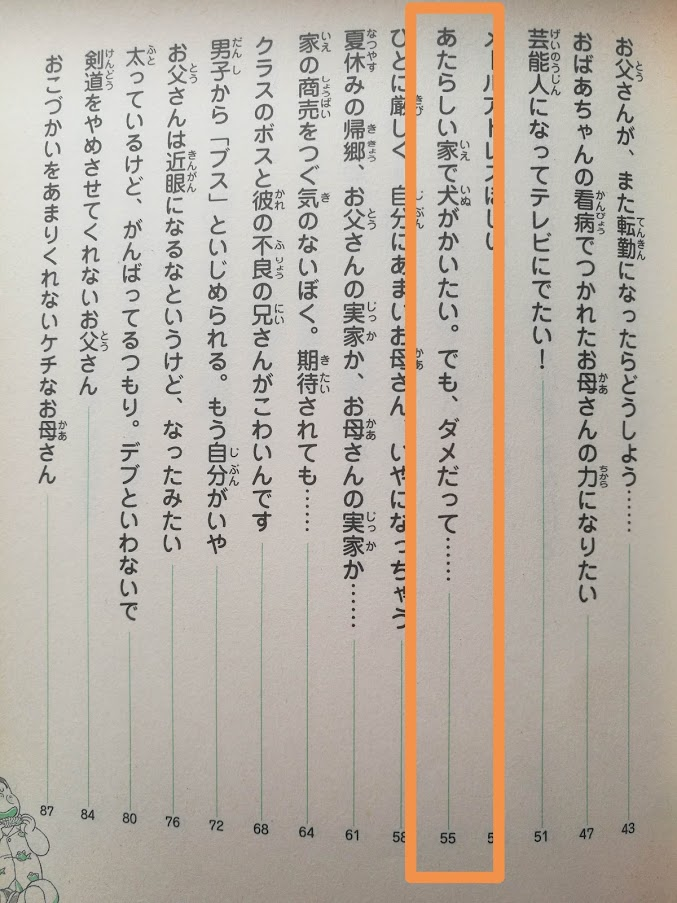 お父さんが、また転勤になったらどうしよう…… 43
おばあちゃんの看病でつかれたお母さんの力になりたい 47
芸能人になってテレビにでたい！ 51
メールアドレスほしい
あたらしい家で犬がかいたい。でも、ダメだって…… 55
ひとに厳しく、自分にあまいお母さん、いやになっちゃう 58
夏休みの帰郷、お父さんの実家か、お母さんの実家か…… 61
家の商売をつぐ気のないぼく。期待されても…… 64
クラスのボスと彼の不良の兄さんがこわいんです 68
男子から「ブス」といじめられる。もう自分がいや 72
お父さんは近眼になるなというけど、なったみたい 76
太っているけど、がんばってるつもり。デブといわないで 80
剣道をやめさせてくれないお父さん 84
おこづかいをあまりくれないケチなお母さん 87